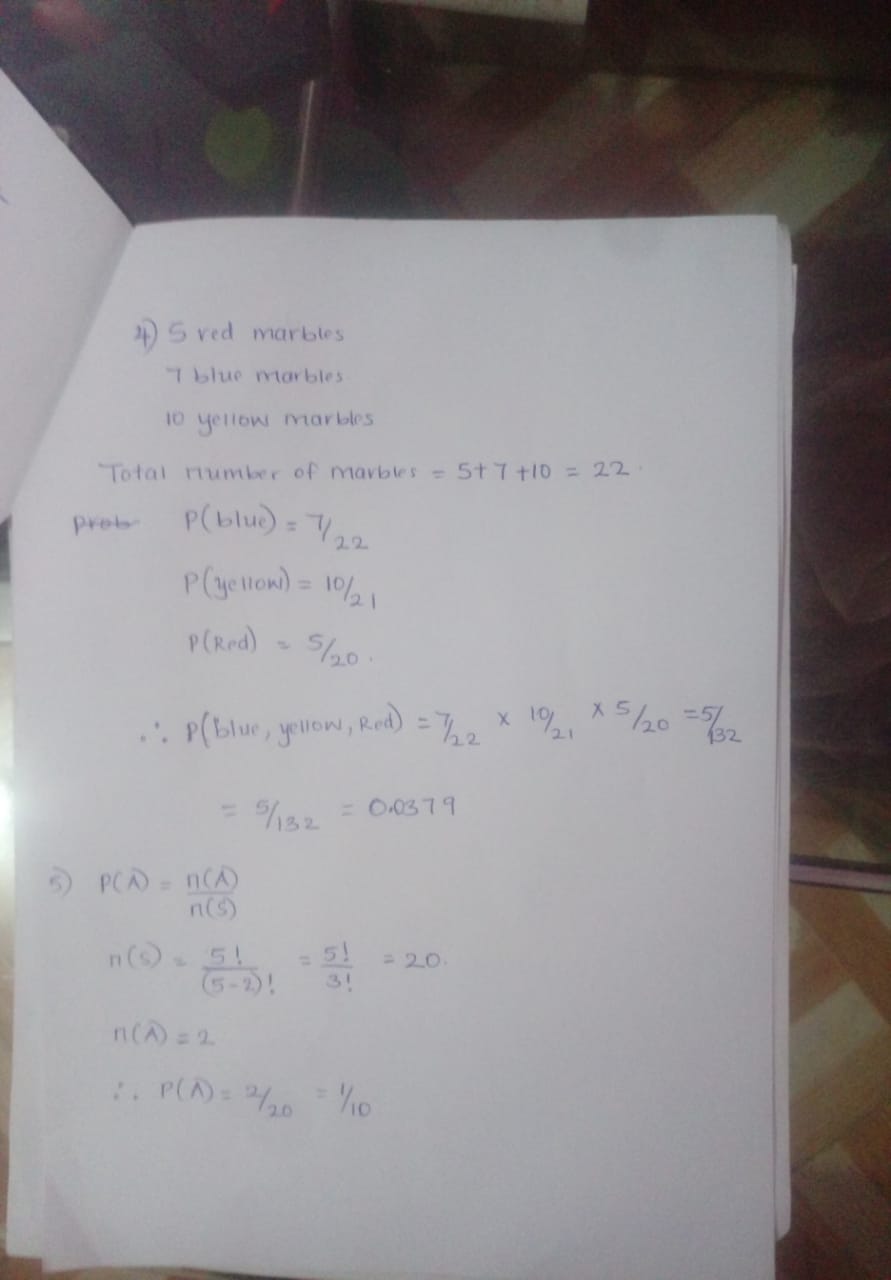 4) 5 red marbles
7 blue marbles
10 yellow marbles
Total number of marbles = 5+7+10 = 22.
prob P(blue) = 7/22
P(yellow) = 10/21
P(Red) = 5/20.
∴ P(blue, yellow, Red) = 7/22 x 10/21 x 5/20 = 5/132
= 5/132 = 0.0379
5) P(A) = n(A)/n(S)
n(S) = 5!/(5-2)! = 5!/3! = 20.
n(A) = 2
∴ P(A) = 2/20 = 1/10